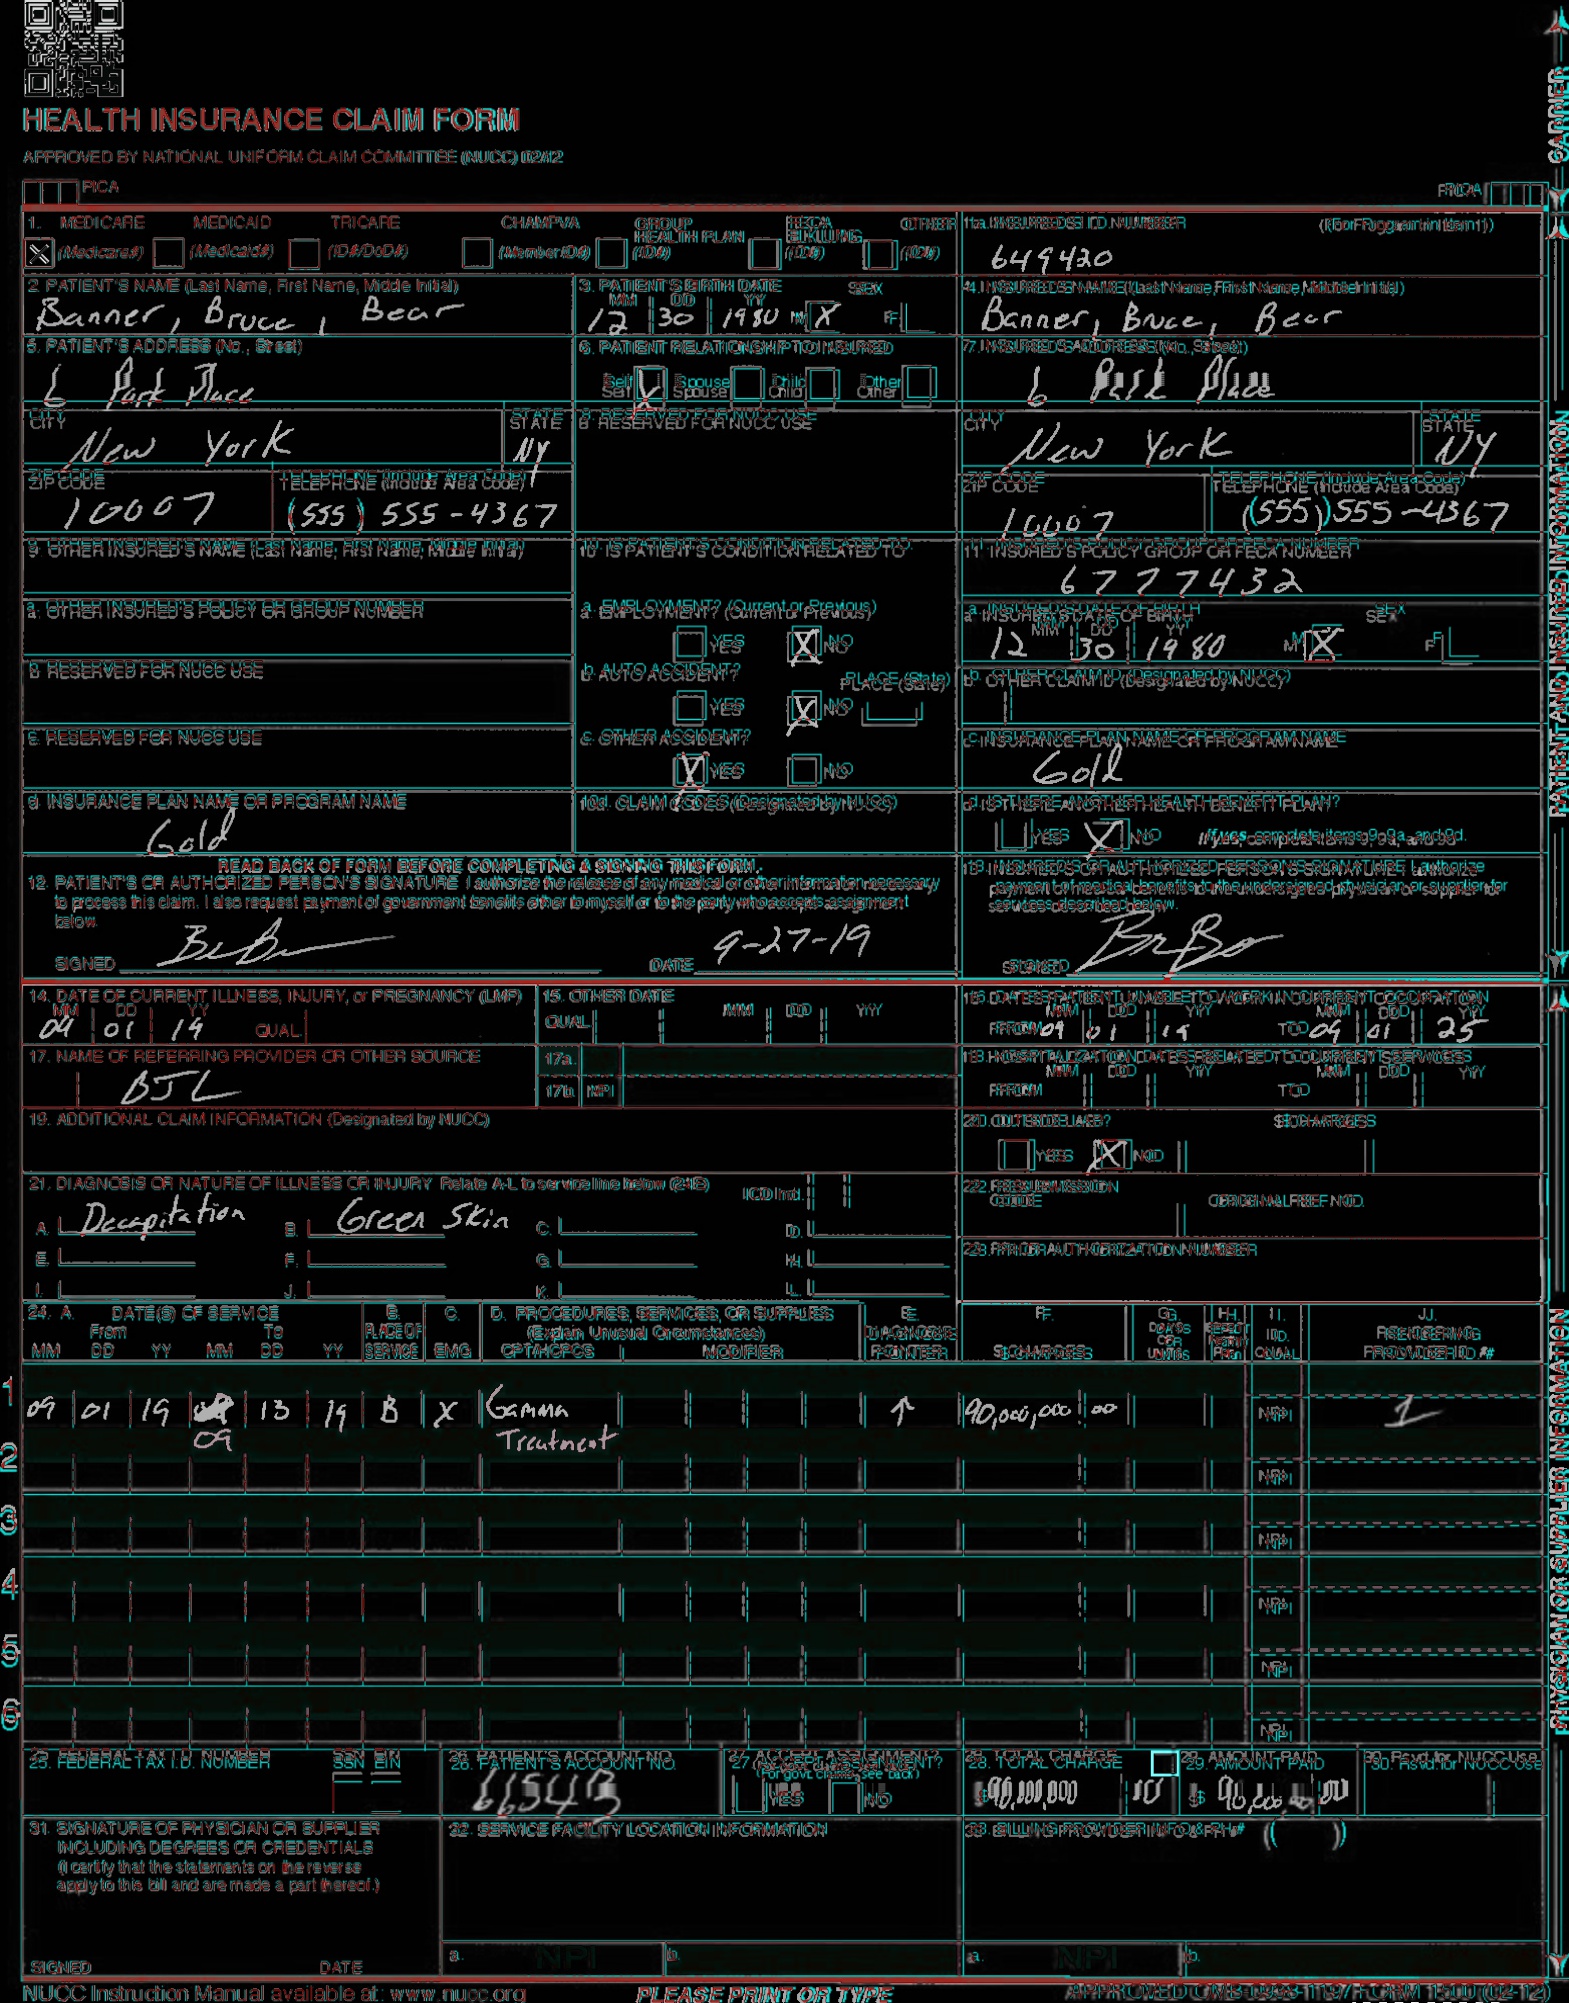 HEALTH INSURANCE CLAIM FORM
APPROVED BY NATIONAL UNIFORM CLAIM COMMITTEE (NUCC) 02/12
PICA
PICA
CARRIER
1. MEDICARE MEDICAID TRICARE CHAMPVA GROUP HEALTH PLAN FECA BLK LUNG OTHER
X (Medicare#) (Medicaid#) (ID#/DoD#) (Member ID#) (ID#) (ID#) (ID#)
1a. INSURED'S I.D. NUMBER (For Program in Item 1)
649420
2. PATIENT'S NAME (Last Name, First Name, Middle Initial)
Banner, Bruce, Bear
3. PATIENT'S BIRTH DATE SEX
MM DD YY
12 30 1980 M X F
4. INSURED'S NAME (Last Name, First Name, Middle Initial)
Banner, Bruce, Bear
5. PATIENT'S ADDRESS (No., Street)
6 Park Place
6. PATIENT RELATIONSHIP TO INSURED
Self X Spouse Child Other
7. INSURED'S ADDRESS (No., Street)
6 Park Place
CITY STATE
New York NY
8. RESERVED FOR NUCC USE
CITY STATE
New York NY
ZIP CODE TELEPHONE (Include Area Code)
10007 (555) 555-4367
ZIP CODE TELEPHONE (Include Area Code)
10007 (555) 555-4367
9. OTHER INSURED'S NAME (Last Name, First Name, Middle Initial)
10. IS PATIENT'S CONDITION RELATED TO:
11. INSURED'S POLICY GROUP OR FECA NUMBER
6777432
a. OTHER INSURED'S POLICY OR GROUP NUMBER
a. EMPLOYMENT? (Current or Previous)
YES X NO
a. INSURED'S DATE OF BIRTH SEX
MM DD YY
12 30 1980 M X F
b. RESERVED FOR NUCC USE
b. AUTO ACCIDENT? PLACE (State)
YES X NO
b. OTHER CLAIM ID (Designated by NUCC)
c. RESERVED FOR NUCC USE
c. OTHER ACCIDENT?
X YES NO
c. INSURANCE PLAN NAME OR PROGRAM NAME
Gold
d. INSURANCE PLAN NAME OR PROGRAM NAME
Gold
10d. CLAIM CODES (Designated by NUCC)
d. IS THERE ANOTHER HEALTH BENEFIT PLAN?
YES X NO If yes, complete items 9, 9a, and 9d.
READ BACK OF FORM BEFORE COMPLETING & SIGNING THIS FORM.
12. PATIENT'S OR AUTHORIZED PERSON'S SIGNATURE I authorize the release of any medical or other information necessary
to process this claim. I also request payment of government benefits either to myself or to the party who accepts assignment
below.
SIGNED DATE 9-27-19
13. INSURED'S OR AUTHORIZED PERSON'S SIGNATURE I authorize
payment of medical benefits to the undersigned physician or supplier for
services described below.
SIGNED
PATIENT AND INSURED INFORMATION
14. DATE OF CURRENT ILLNESS, INJURY, or PREGNANCY (LMP)
MM DD YY
09 01 19 QUAL.
15. OTHER DATE
QUAL. MM DD YY
16. DATES PATIENT UNABLE TO WORK IN CURRENT OCCUPATION
MM DD YY MM DD YY
FROM 09 01 19 TO 09 01 25
17. NAME OF REFERRING PROVIDER OR OTHER SOURCE
BJL
17a.
17b. NPI
18. HOSPITALIZATION DATES RELATED TO CURRENT SERVICES
MM DD YY MM DD YY
FROM TO
19. ADDITIONAL CLAIM INFORMATION (Designated by NUCC)
20. OUTSIDE LAB? $ CHARGES
YES X NO
21. DIAGNOSIS OR NATURE OF ILLNESS OR INJURY Relate A-L to service line below (24E) ICD Ind.
A. Decapitation B. Green Skin C. D.
E. F. G. H.
I. J. K. L.
22. RESUBMISSION
CODE ORIGINAL REF. NO.
23. PRIOR AUTHORIZATION NUMBER
24. A. DATE(S) OF SERVICE B. C. D. PROCEDURES, SERVICES, OR SUPPLIES E. F. G. H. I. J.
From To PLACE OF (Explain Unusual Circumstances) DIAGNOSIS DAYS OR UNITS EPSDT Family Plan ID. RENDERING
MM DD YY MM DD YY SERVICE EMG CPT/HCPCS MODIFIER POINTER $ CHARGES QUAL. PROVIDER ID. #
1 09 01 19 09 13 19 B X Gamma Treatment ↑ 90,000,000 00 NPI 1
2 NPI
3 NPI
4 NPI
5 NPI
6 NPI
PHYSICIAN OR SUPPLIER INFORMATION
25. FEDERAL TAX I.D. NUMBER SSN EIN
26. PATIENT'S ACCOUNT NO.
27. ACCEPT ASSIGNMENT?
(For govt. claims, see back)
YES NO
28. TOTAL CHARGE
$ 90,000,000 00
29. AMOUNT PAID
$
30. Rsvd for NUCC Use
31. SIGNATURE OF PHYSICIAN OR SUPPLIER
INCLUDING DEGREES OR CREDENTIALS
(I certify that the statements on the reverse
apply to this bill and are made a part thereof.)
SIGNED DATE
32. SERVICE FACILITY LOCATION INFORMATION
a. NPI b.
33. BILLING PROVIDER INFO & PH # ( )
a. NPI b.
NUCC Instruction Manual available at: www.nucc.org
PLEASE PRINT OR TYPE
APPROVED OMB-0938-1197 FORM 1500 (02-12)